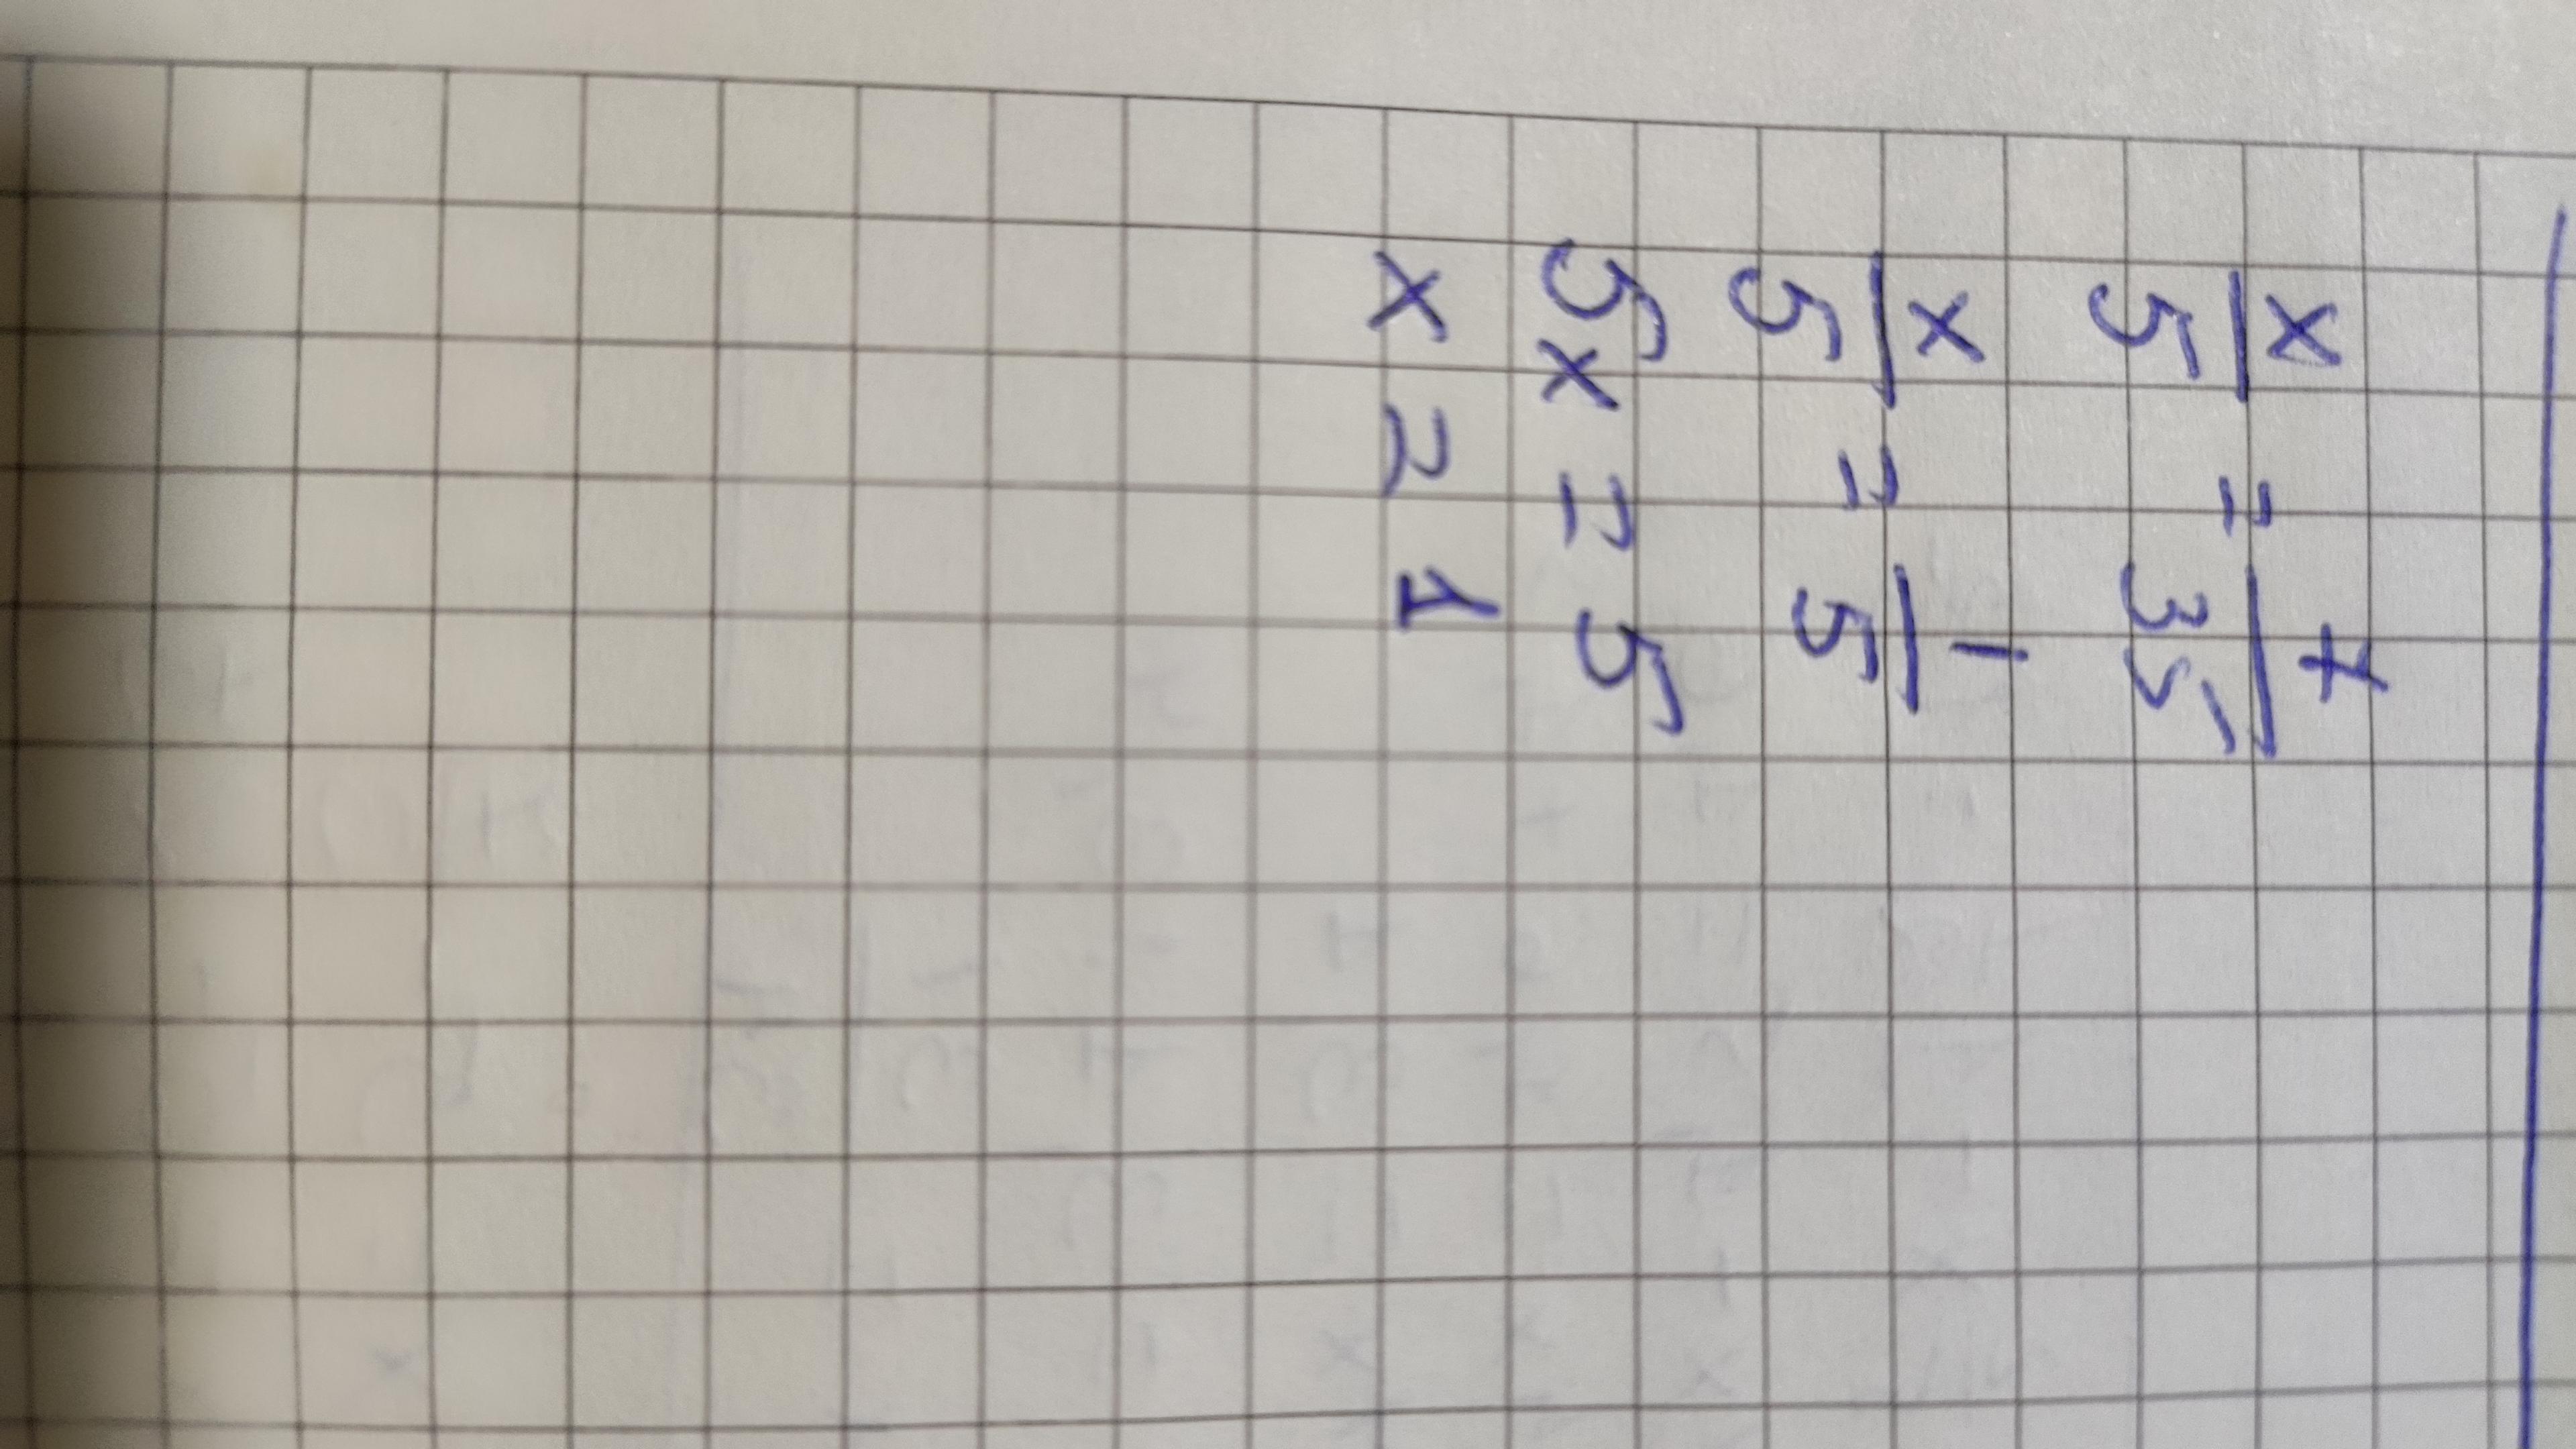 x/5 = 7/35
x/5 = 1/5
5x = 5
x = 1